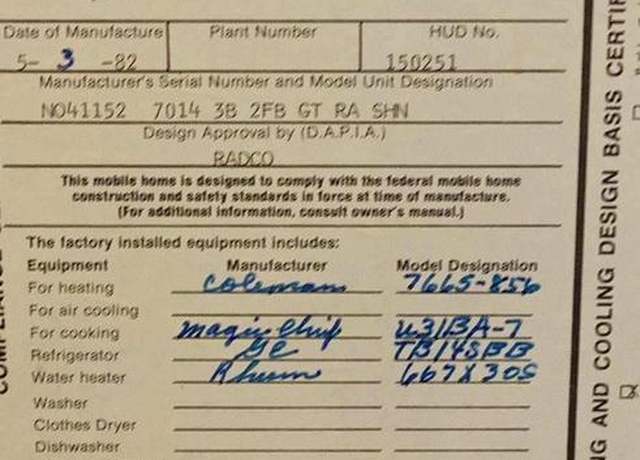 Date of Manufacture Plant Number HUD No.
5- 3 -82 150251
Manufacturer's Serial Number and Model Unit Designation
NO41152 7014 3B 2FB GT RA SHN
Design Approval by (D.A.P.I.A.)
RADCO
This mobile home is designed to comply with the federal mobile home
construction and safety standards in force at time of manufacture.
(For additional information, consult owner's manual.)
The factory installed equipment includes:
Equipment Manufacturer Model Designation
For heating Coleman 7665-856
For air cooling
For cooking Magic Chef u31BA-7
Refrigerator GE TB14SBB
Water heater Rheem 667X30S
Washer
Clothes Dryer
Dishwasher
NG AND COOLING DESIGN BASIS CERTIF